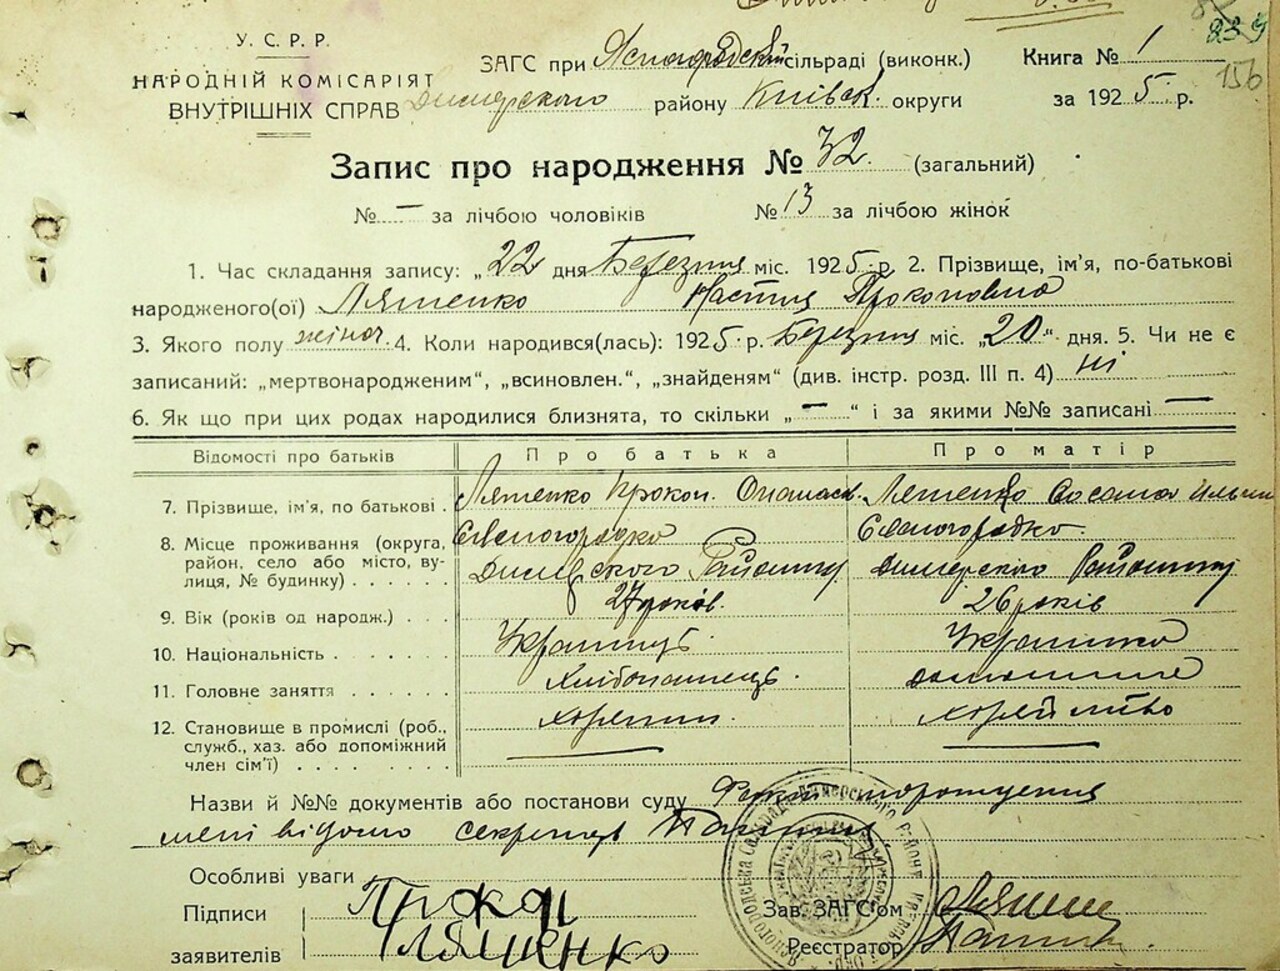 У. С. Р. Р.
НАРОДНІЙ КОМІСАРІЯТ
ВНУТРІШНІХ СПРАВ
ЗАГС при Ясногородській сільраді (виконк.)
Книга № 1
239
156
Димерского району Київськ. округи
за 1925 р.
Запис про народження № 32. (загальний)
№ — за лічбою чоловіків
№ 13 за лічбою жінок
1. Час складання запису: „22 дня Березня міс. 1925 р. 2. Прізвище, ім'я, по-батькові
народженого(ої) Ляшенко Настия Прокоповна
3. Якого полу жіноч. 4. Коли народився(лась): 1925 р. Березня міс. „20" дня. 5. Чи не є
записаний: „мертвонародженим", „всиновлен.", „знайденям" (див. інстр. розд. III п. 4) ні
6. Як що при цих родах народилися близнята, то скільки „—" і за якими №№ записані —
Відомості про батьків
Про батька
Про матір
7. Прізвище, ім'я, по батькові .
Ляшенко Прокоп. Опанасов.
Ляшенко
8. Місце проживання (округа, район, село або місто, вулиця, № будинку)
Димерского Району
Димерского Району
9. Вік (років од народж.)
27 років.
26 років
10. Національність
Українець
Українка
11. Головне заняття
Хлібопашець.
домашнє
12. Становище в промислі (роб., служб., хаз. або допоміжний член сім'ї)
Назви й №№ документів або постанови суду
мені відомо секретарь
Особливі уваги
Підписи
заявителів
Прокоп
Ляшенко
Зав. ЗАГС'ом
Реєстратор